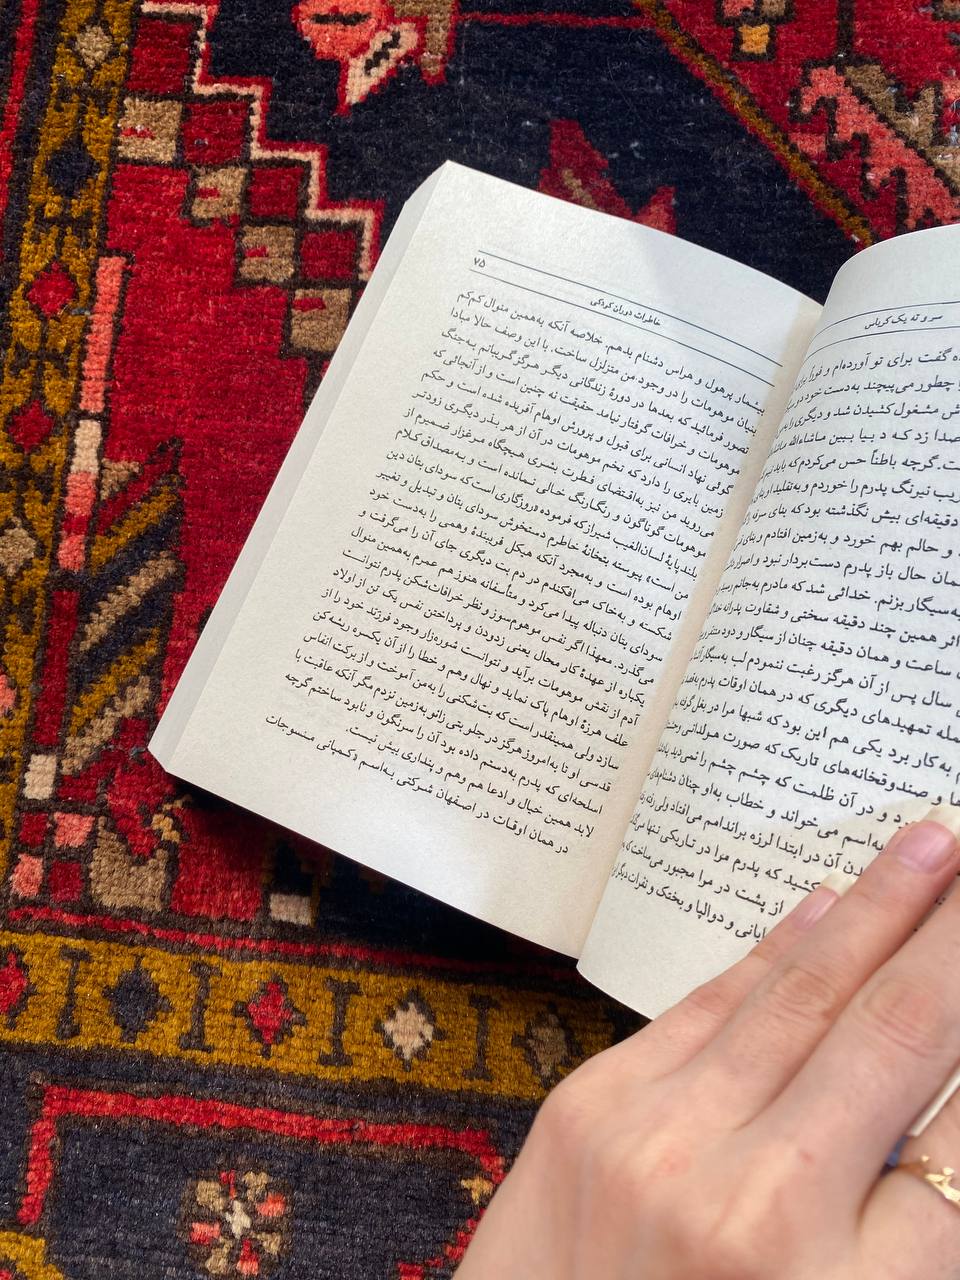 سر و ته یک کرباس
ه گفت برای تو آورده‌ام و فوراً
چطور می‌پیچند به‌دست خود
مشغول کشیدن شد و دیگری را
صدا زد که د بیا ببین ماشاءالله
گرچه باطناً حس می‌کردم که باید
نیرنگ پدرم را خوردم و به‌تقلید او
دقیقه‌ای بیش نگذشته بود که بنای سرفه را
و حالم بهم خورد و به‌زمین افتادم و بنای
همان حال باز پدرم دست‌بردار نبود و
به‌سیگار بزنم. خدائی شد که مادرم به‌جانم
اثر همین چند دقیقه سختی و شقاوت پدرانه
ساعت و همان دقیقه چنان از سیگار و دود
سال پس از آن هرگز رغبت ننمودم لب به‌سیگار
تمهیدهای دیگری که در همان اوقات پدرم
به کار برد یکی هم این بود که شبها مرا در بغل گرفته
و صندوقخانه‌های تاریک که صورت هولدانی
و در آن ظلمت که چشم چشم را نمی‌دید
به‌اسم می‌خواند و خطاب به‌او چنان دشنام‌های
آن در ابتدا لرزه براندامم می‌افتاد ولی رفته
کشید که پدرم مرا در تاریکی تنها
از پشت در مرا مجبور می‌ساخت که
و دوالپا و بختک و نفرات دیگر
خاطرات دوران کودکی
۷۵
بیسار پرهول و هراس دشنام بدهم. خلاصه آنکه به‌همین منوال کم‌کم
بنیان موهومات را در وجود من متزلزل ساخت. با این وصف حالا مبادا
تصور فرمائید که بعدها در دورهٔ زندگانی دیگر هرگز گریبانم به‌جنگ
موهومات و خرافات گرفتار نیامد حقیقت نه چنین است و از آنجائی که
گوئی نهاد انسانی برای قبول و پرورش اوهام آفریده شده است و حکم
زمین بایری را دارد که تخم موهومات در آن از هر بذر دیگری زودتر
می‌روید من نیز به‌اقتضای فطرت بشری هیچگاه مرغزار ضمیرم از
موهومات گوناگون و رنگارنگ خالی نمانده است و به‌مصداق کلام
بلندپایهٔ لسان‌الغیب شیراز که فرموده «روزگاری است که سودای بتان دین
من است» پیوسته بتخانهٔ خاطرم دستخوش سودای بتان و تبدیل و تغییر
اوهام بوده است و به‌مجرد آنکه هیکل فریبندهٔ وهمی را به‌دست خود
شکسته و به‌خاک می‌افکندم در دم بت دیگری جای آن را می‌گرفت و
سودای بتان دنباله پیدا می‌کرد و متأسفانه هنوز هم عمرم به‌همین منوال
می‌گذرد. معهذا اگر نفس موهوم‌سوز و نظر خرافات‌شکن پدرم نتوانست
یکباره از عهدهٔ کار محال یعنی زدودن و پرداختن نفس یک تن از اولاد
آدم از نقش موهومات برآید و نتوانست شوره‌زار وجود فرزند خود را از
علف هرزهٔ اوهام پاک نماید و نهال وهم و خطا را از آن یکسره ریشه‌کن
سازد ولی همینقدر است که بت‌شکنی را به‌من آموخت و از برکت انفاس
قدسی او تا به‌امروز هرگز در جلو بتی زانو به‌زمین نزدم مگر آنکه عاقبت با
اسلحه‌ای که پدرم به‌دستم داده بود آن را سرنگون و نابود ساختم گرچه
لابد همین خیال و ادعا هم وهم و پنداری بیش نیست.
در همان اوقات در اصفهان شرکتی به‌اسم «کمپانی منسوجات